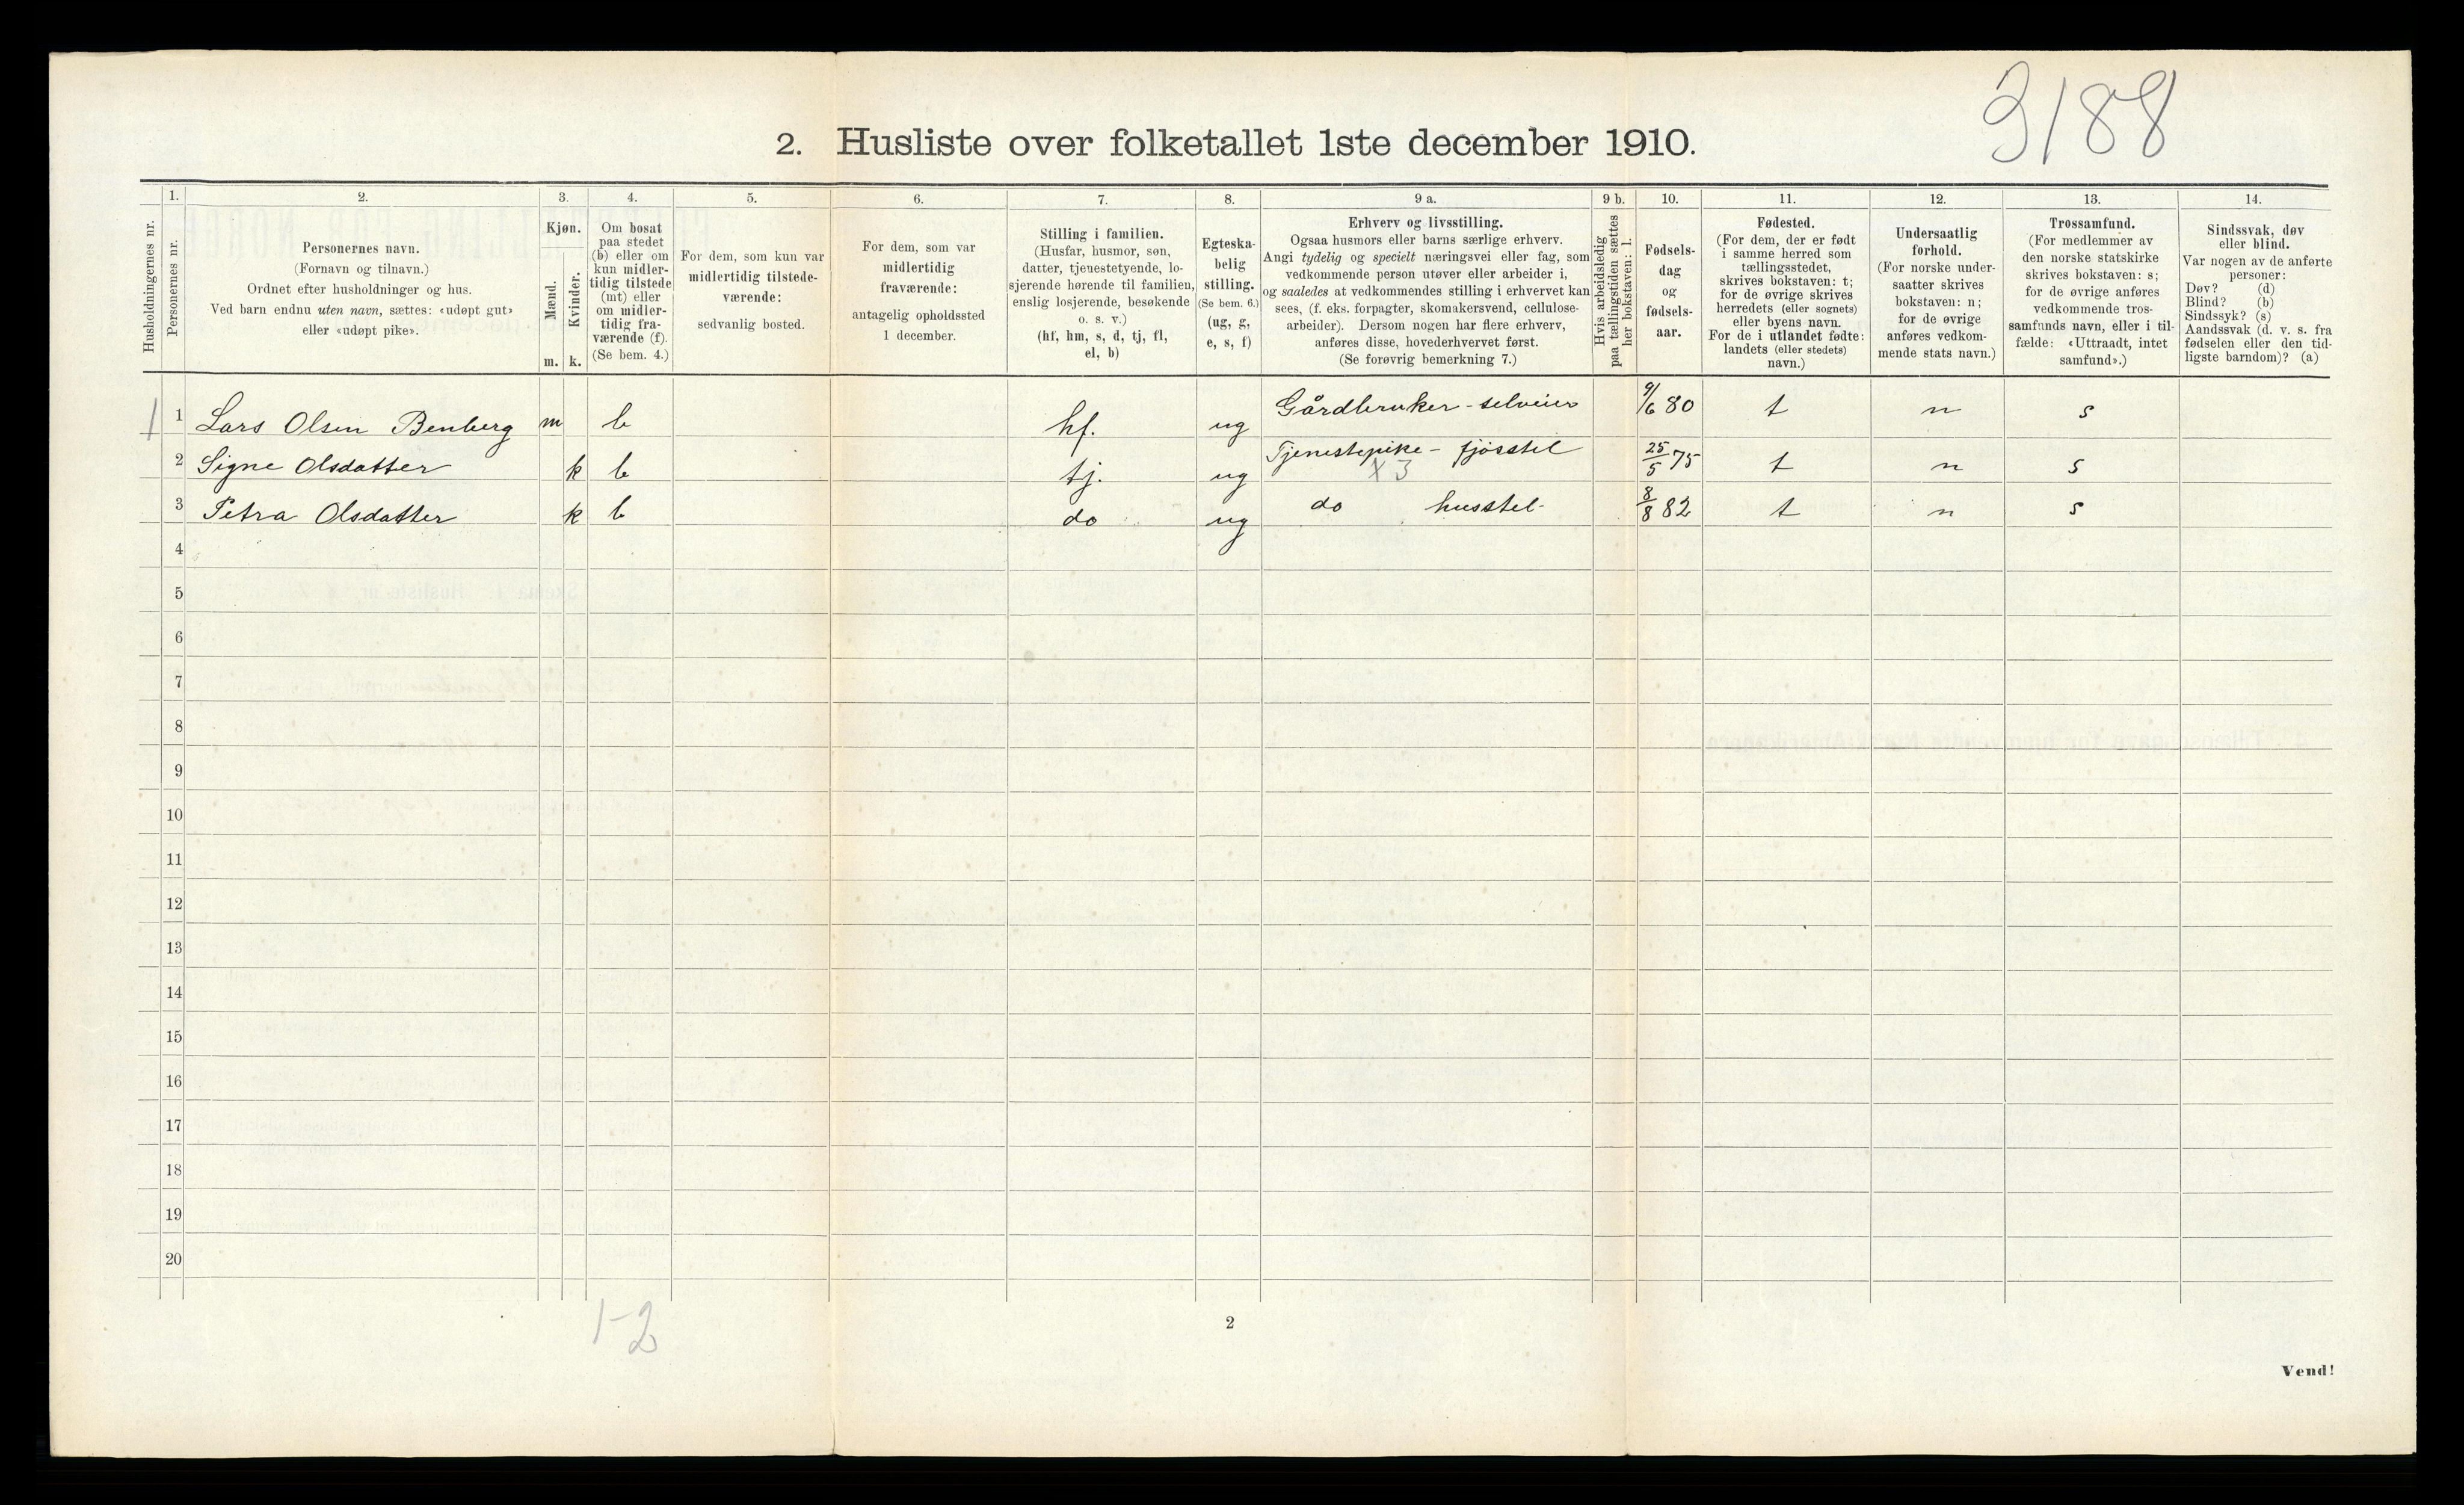 3188
2. Husliste over folketallet 1ste december 1910.
Husholdningernes nr.
1.
Personernes nr.
2.
Personernes navn.
(Fornavn og tilnavn.)
Ordnet efter husholdninger og hus.
Ved barn endnu uten navn, sættes: «udøpt gut»
eller «udøpt pike».
3.
Kjøn.
Mænd.
Kvinder.
m. k.
4.
Om bosat
paa stedet
(b) eller om
kun midler-
tidig tilstede
(mt) eller
om midler-
tidig fra-
værende (f).
(Se bem. 4.)
5.
For dem, som kun var
midlertidig tilstede-
værende:
sedvanlig bosted.
6.
For dem, som var
midlertidig
fraværende:
antagelig opholdssted
1 december.
7.
Stilling i familien.
(Husfar, husmor, søn,
datter, tjenestetyende, lo-
sjerende hørende til familien,
enslig losjerende, besøkende
o. s. v.)
(hf, hm, s, d, tj, fl,
el, b)
8.
Egteska-
belig
stilling.
(Se bem. 6.)
(ug, g,
e, s, f)
9 a.
Erhverv og livsstilling.
Ogsaa husmors eller barns særlige erhverv.
Angi tydelig og specielt næringsvei eller fag, som
vedkommende person utøver eller arbeider i,
og saaledes at vedkommendes stilling i erhvervet kan
sees, (f. eks. forpagter, skomakersvend, cellulose-
arbeider). Dersom nogen har flere erhverv,
anføres disse, hovederhvervet først.
(Se forøvrig bemerkning 7.)
9 b.
Hvis arbeidsledig
paa tællingstiden sættes
her bokstaven: l.
10.
Fødsels-
dag
og
fødsels-
aar.
11.
Fødested.
(For dem, der er født
i samme herred som
tællingsstedet,
skrives bokstaven: t;
for de øvrige skrives
herredets (eller sognets)
eller byens navn.
For de i utlandet fødte:
landets (eller stedets)
navn.)
12.
Undersaatlig
forhold.
(For norske under-
saatter skrives
bokstaven: n;
for de øvrige
anføres vedkom-
mende stats navn.)
13.
Trossamfund.
(For medlemmer av
den norske statskirke
skrives bokstaven: s;
for de øvrige anføres
vedkommende tros-
samfunds navn, eller i til-
fælde: «Uttraadt, intet
samfund».)
14.
Sindssvak, døv
eller blind.
Var nogen av de anførte
personer:
Døv? (d)
Blind? (b)
Sindssyk? (s)
Aandssvak (d. v. s. fra
fødselen eller den tid-
ligste barndom)? (a)
1 1 Lars Olsen Benberg m b hf. ug Gårdbruker - selveier 9/6 80 t n s
2 Signe Olsdatter k b tj. ug Tjenestepike - fjøsstel 25/5 75 t n s
X 3
3 Petra Olsdatter k b do ug do husstel - 8/8 82 t n s
4
5
6
7
8
9
10
11
12
13
14
15
16
17
18
19
20
1-2
2
Vend!